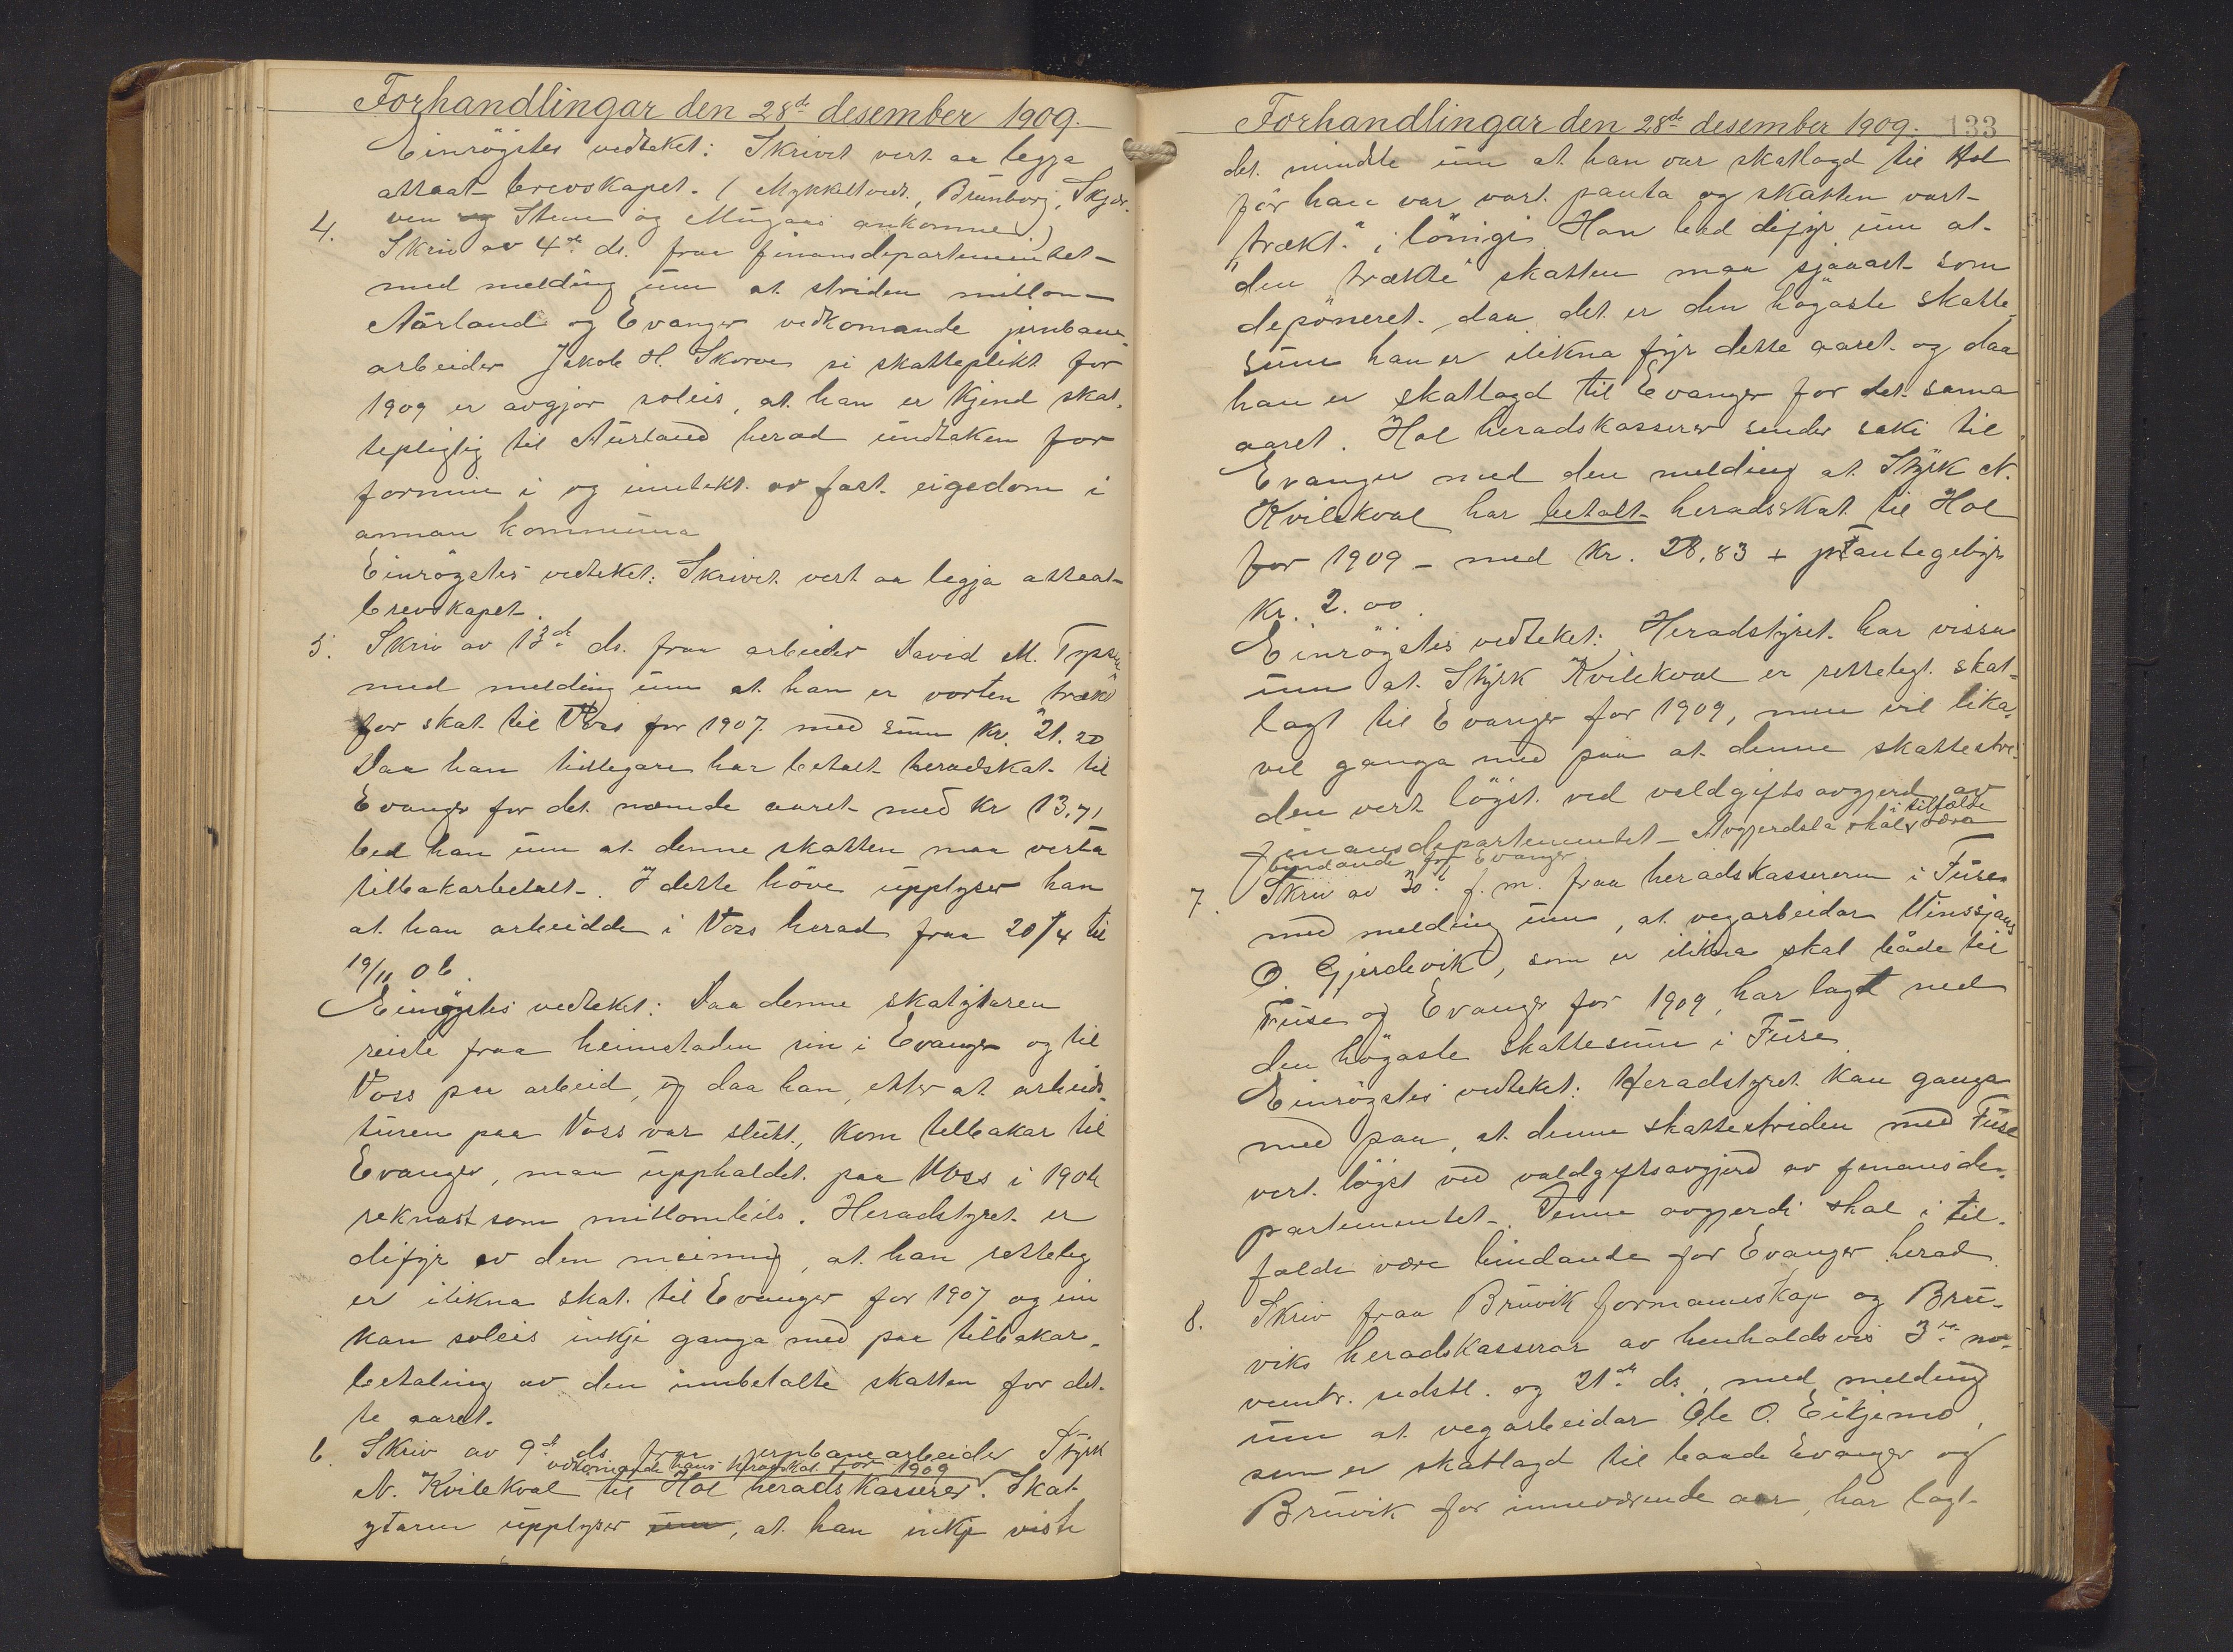 Forhandlingar den 28de desember 1909.
Einrøgstes vedteket: Skrivet vert aa legja
attaat brevskapet. (Mykkeltvedt, Brunborg, Skjer-
ven og Stene og Mugaas ankomne)
4. Skriv av 4de ds. fraa finansdepartementet
med melding um at striden millom
Aurland og Evanger vedkomande jernbane-
arbeider Jakob H. Skorve si skatteplikt for
1909 er avgjor soleis, at han er kjend skat-
tepligtig til Aurland herad undtaken for
formue i og inntekt av fast eigedom i
annan kommuna
Einrøgstes vedteket: Skrivet vert aa legja attaat
brevskapet.
5. Skriv av 13de ds. fraa arbeider David M.
med melding um at han er vorten "trækt"
for skat til Voss for 1907 med sum kr. 21.20
Daa han tidlegare har betalt heradskat til
Evanger for det nemnde aaret med kr 13,71
bed han um at denne skatten maa verta
tilbakarbetalt. I dette høve upplyser han
at han arbeidde i Voss herad fraa 20/4 til
19/11 06.
Einrøgstes vedteket: Daa denne skatytaren
reiste fraa heimstaden sin i Evanger og til
Voss paa arbeid, og daa han, etter at arbeids-
turen paa Voss var slutt, kom tilbakar til
Evanger, maa uppholdet paa Voss i 1906
reknast som millombils. Heradstyret er
difyr av den meining, at han retteleg
er ilikna skat til Evanger for 1907 og ein
kan soleis inkje ganga med paa tilbakar-
betaling av den innbetalte skatten for det-
te aaret.
6. Skriv av 9de ds. fraa jernbanearbeider Styrk
vedkomande hans heradskat for 1909
N. Kvilekval til Hol heradskasserer. Skat-
ytaren upplyser um, at han inkje viste
Forhandlingar den 28de desember 1909. 133
det mindste um at han var skatlagd til Hol
før han var vort panta og skatten vart
"trækt" i løningi. Han bed difyr um at
den "trækte" skatten maa sjaaast som
deponeret, daa det er den høgaste skatte-
sum han er ilikna fyr dette aaret og daa
han er skatlagd til Evanger for det sama
aaret. Hol heradskasserer sender saki til
Evanger med den melding at Styrk N.
Kvilekval har betalt heradsskat til Hol
for 1909 - med kr. 28,83 + pantegebyr
kr. 2.00.
Einrøgstes vedteket: Heradstyret har vissa
um at Styrk Kvilekval er rettelegt skat-
lagt til Evanger for 1909, men vil lika-
vel ganga med paa at denne skattestri-
den vert løyst ved voldgiftsavgjerd av
finansdepartementet. Avgjerdsla skal i tilfælde vera
bindande for Evanger
7. Skriv av 30te f. m. fraa heradskassereren i Fuse
med melding um, at vegarbeidar
O. Gjerdevik, som er ilikna skat både til
Fuse og Evanger for 1909, har lagt ned
den høgaste skattesum i Fuse.
Einrøgstes vedteket: Heradstyret kan ganga
med paa, at denne skattestriden med Fuse
vert løyst ved voldgiftsavgjerd av finansde-
partementet. Denne avgjerdi skal i til-
fælde vere bindande for Evanger herad.
8. Skriv fraa Bruvik formannskap og Bru-
viks heradskasserar av henholdsvis 3de no-
vembr. sidstl. og 21de ds., med melding
um at vegarbeidar Ole O. Eikjemo,
sum er skatlagd til baade Evanger og
Bruvik for inneverende aar, har lagt